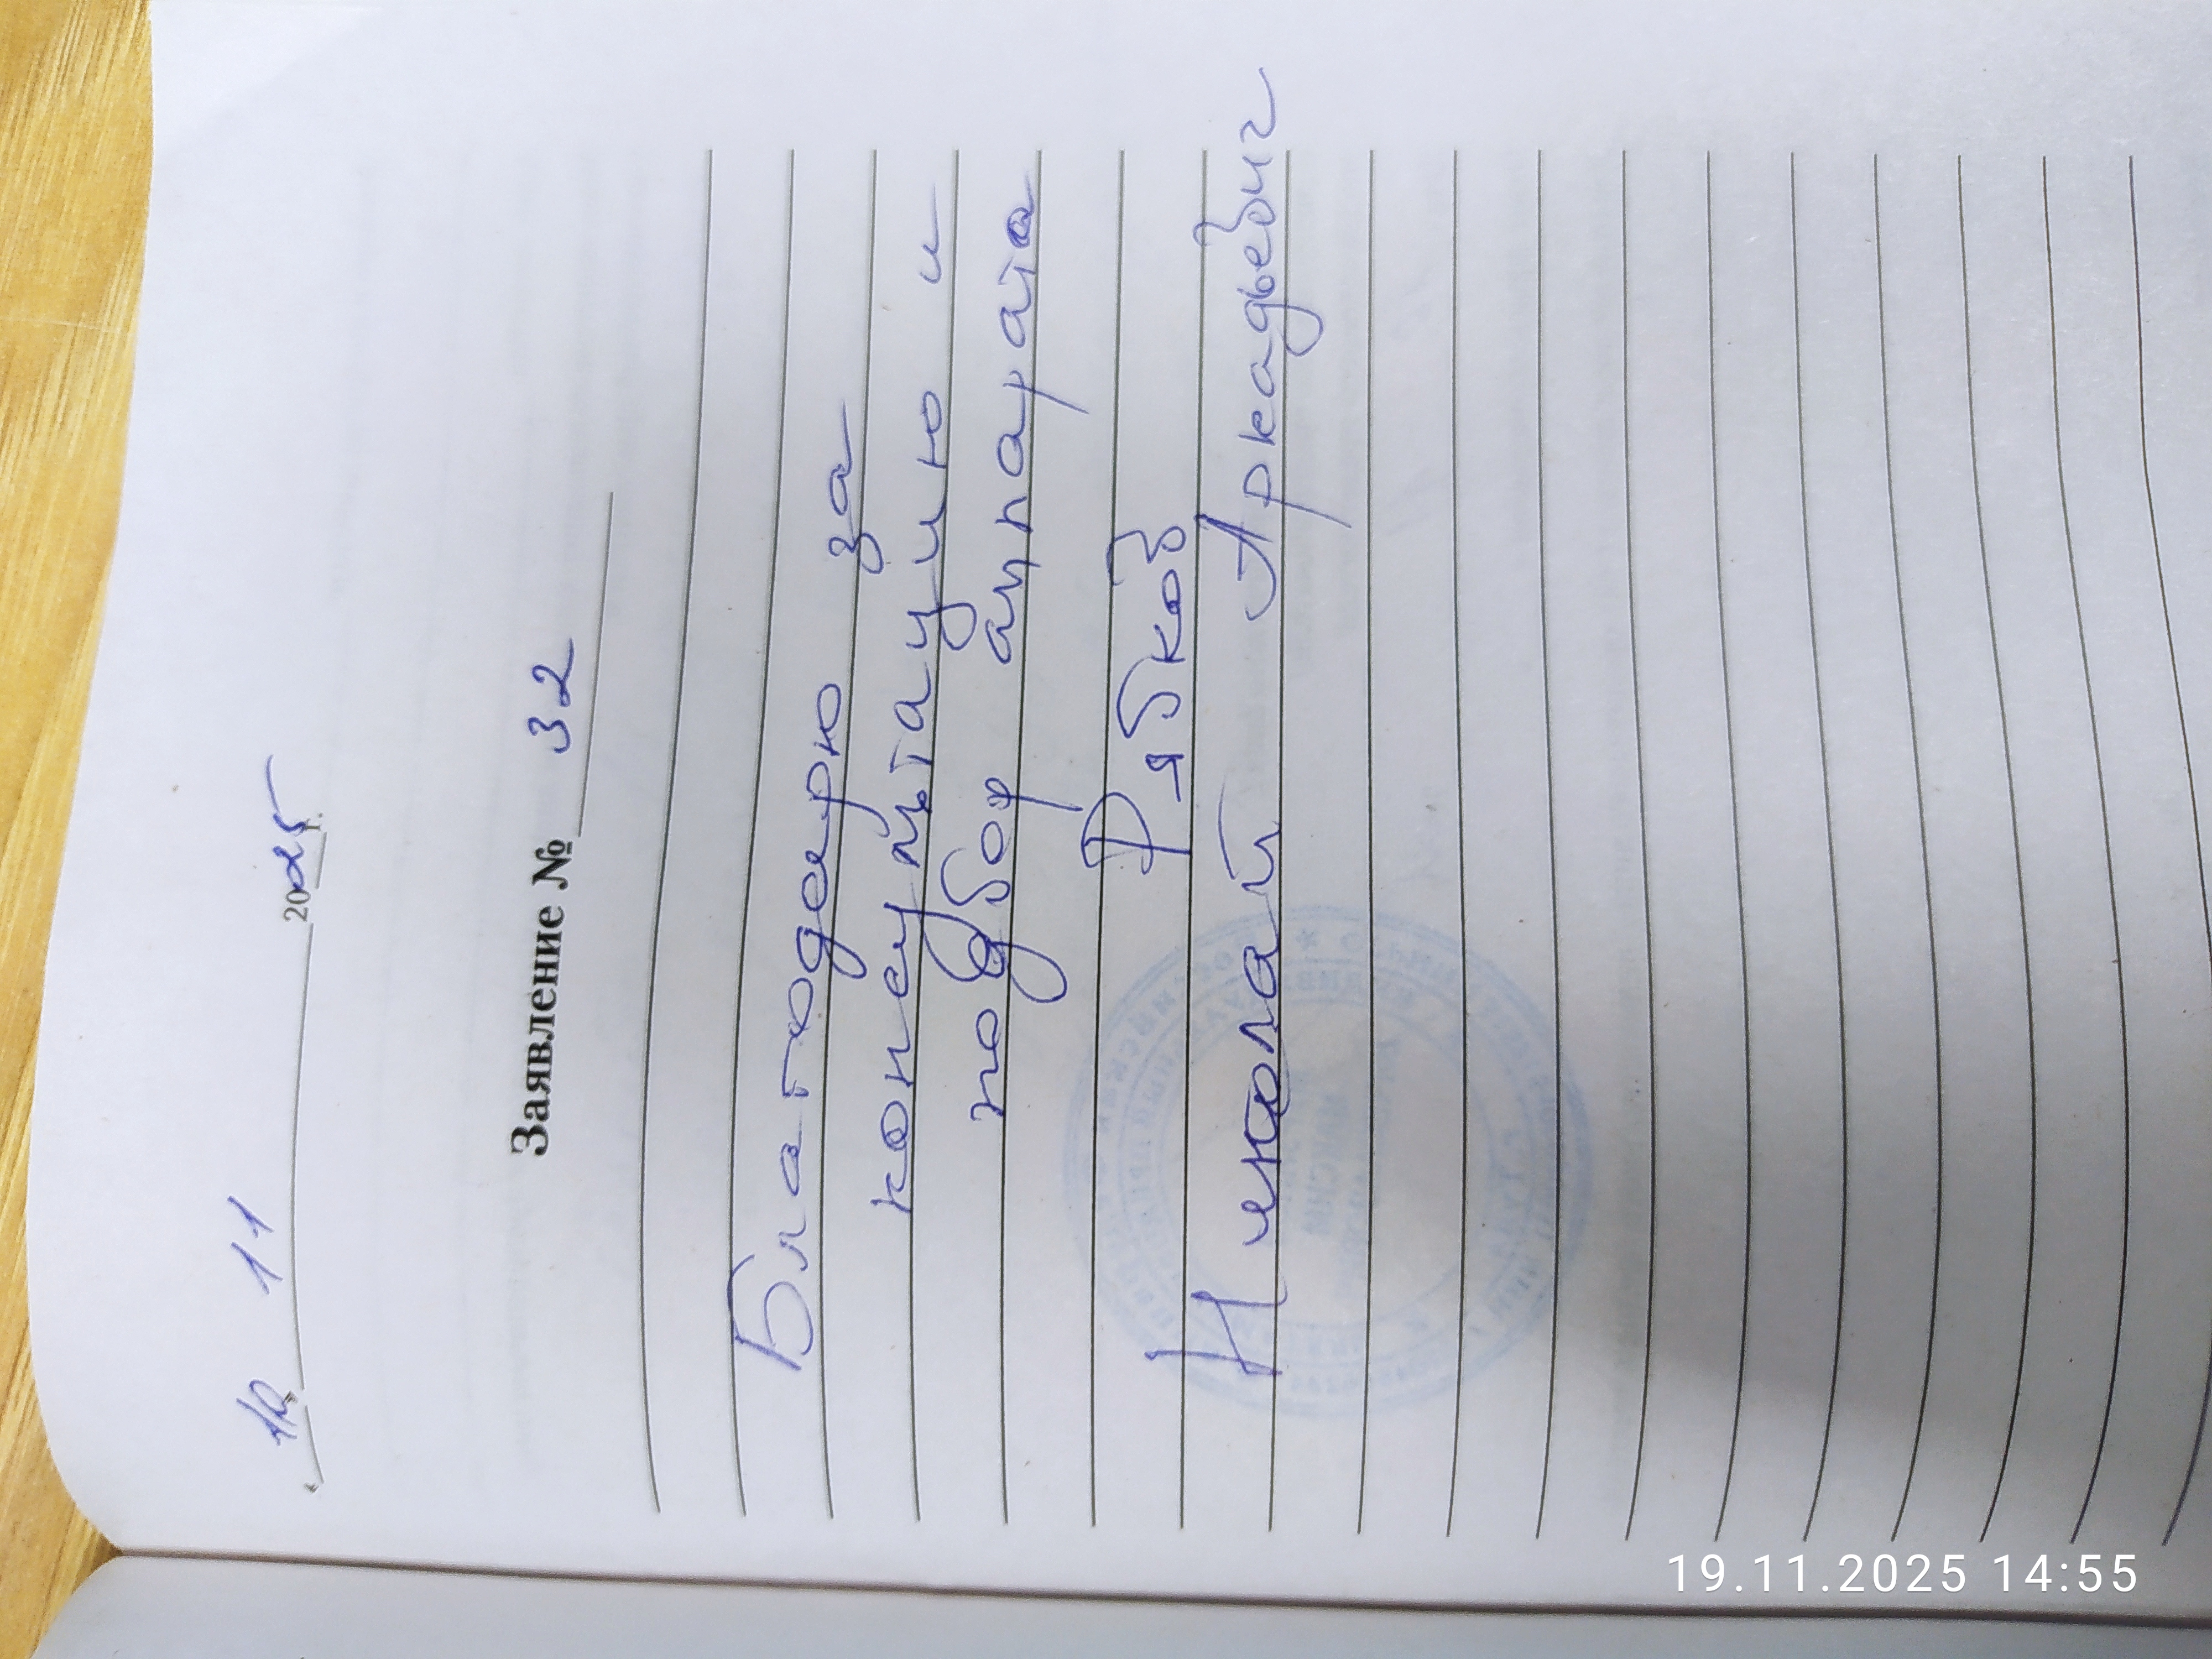 « 18 » 11 2025 г.
Заявление № 32
Благодарю за
консультацию и
подбор аппарата
Рябков
Николай Аркадьевич
19.11.2025 14:55